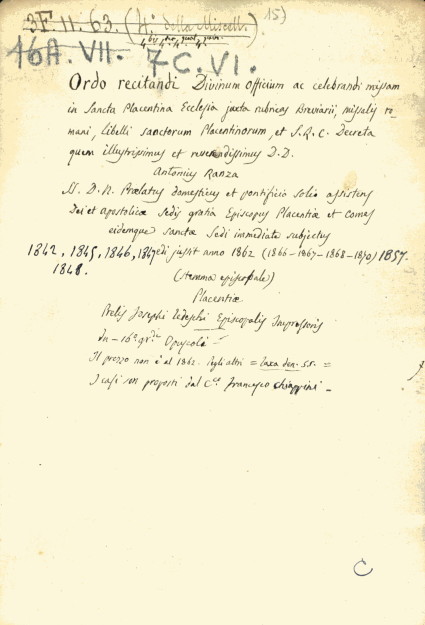 3F. 11. 63. (H. della Miscell.)
15)
4 bis 4. ter 4. quat. 4. quin.
16A. VII. 7C. VI.
Ordo recitandi Divinum officium ac celebrandi missam
in Sancta Placentina Ecclesia juxta rubricas Breviarii, missalis ro-
mani, Libelli Sanctorum Placentinorum, et S. R. C. Decreta
quem illustrissimus et reverendissimus D. D.
Antonius Ranza
SS. D. N. Prælatus domesticus et pontificio solio assistens
Dei et Apostolicæ Sedis gratia Episcopus Placentiæ et comes
eidemque sanctæ Sedi immediate subjectus
1842, 1845, 1846, 1847 edi jussit anno 1862 (1866-1867-1868-1870) 1857.
1848.
(Stemma episcopale)
Placentiæ
Prelis Josephi Tedeschi Episcopalis Impressoris
In-16º gr.de Opuscolo-
Il prezzo non è al 1862. Negli altri = taxa den. 55. =
I casi son proposti dal C.co Francesco Chiappini -
C